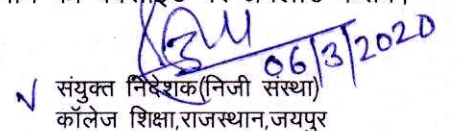 06/3/2020
संयुक्त निदेशक(निजी संस्था)
कॉलेज शिक्षा,राजस्थान,जयपुर